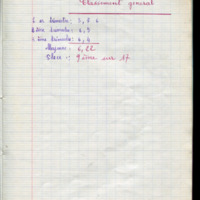 Classement général
1 er trimestre: 5, 8 6
2 ème trimestre: 6, 9
3 ième trimestre: 6, 4
Moyenne: 6, 22
Place: 9 ième sur 17